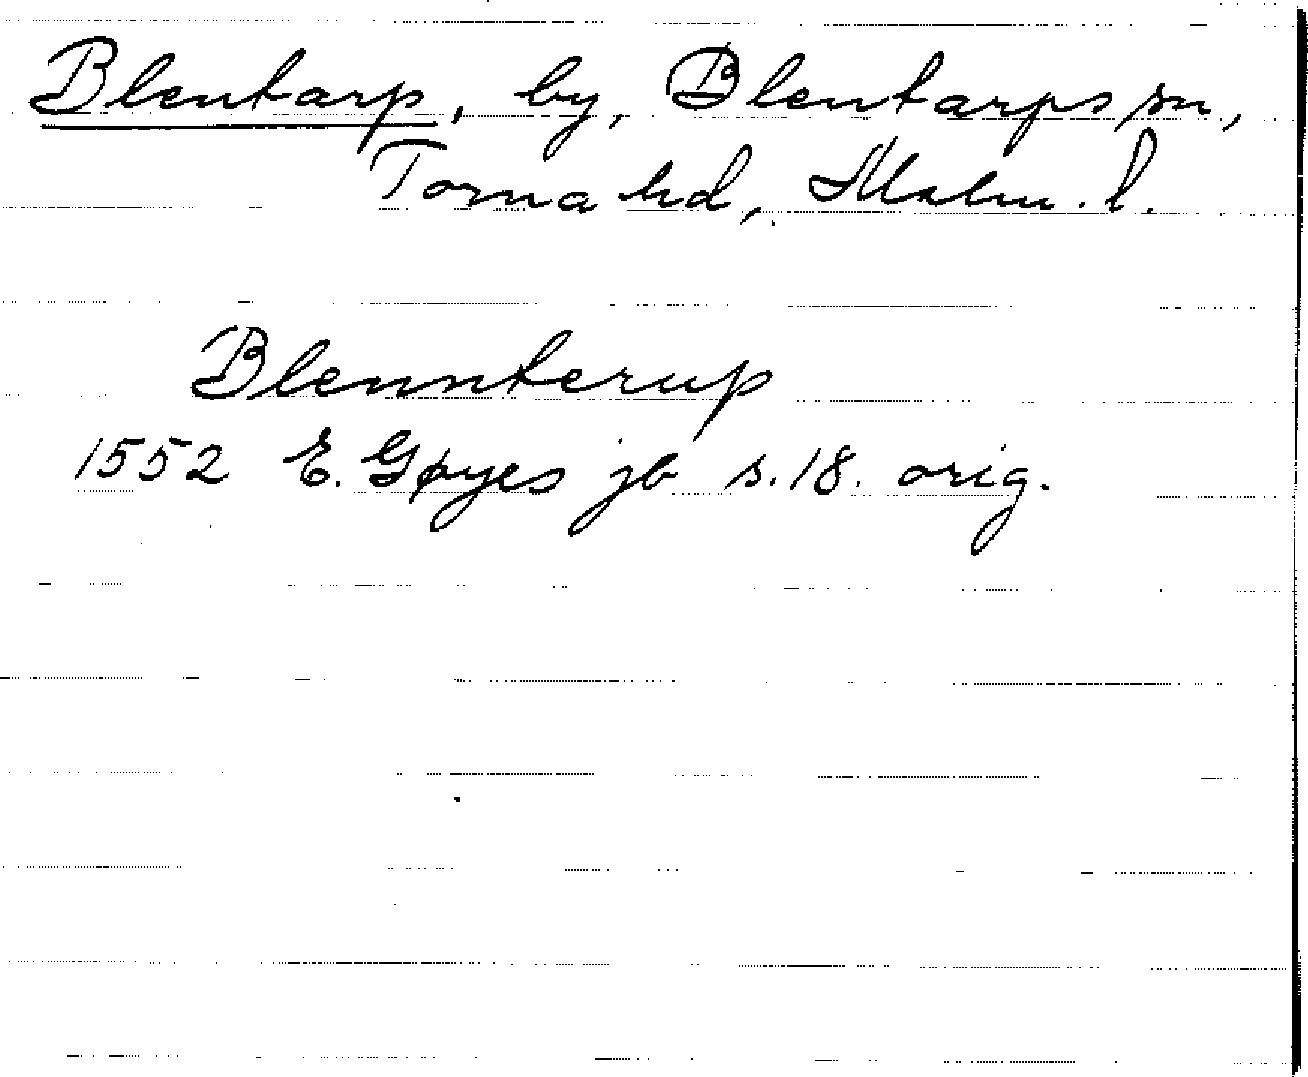 Blentarp, by, Blentarps sn,
Torna hd, Malm. l.
Blennterup
1552 E. Gøyes jb s. 18. orig.